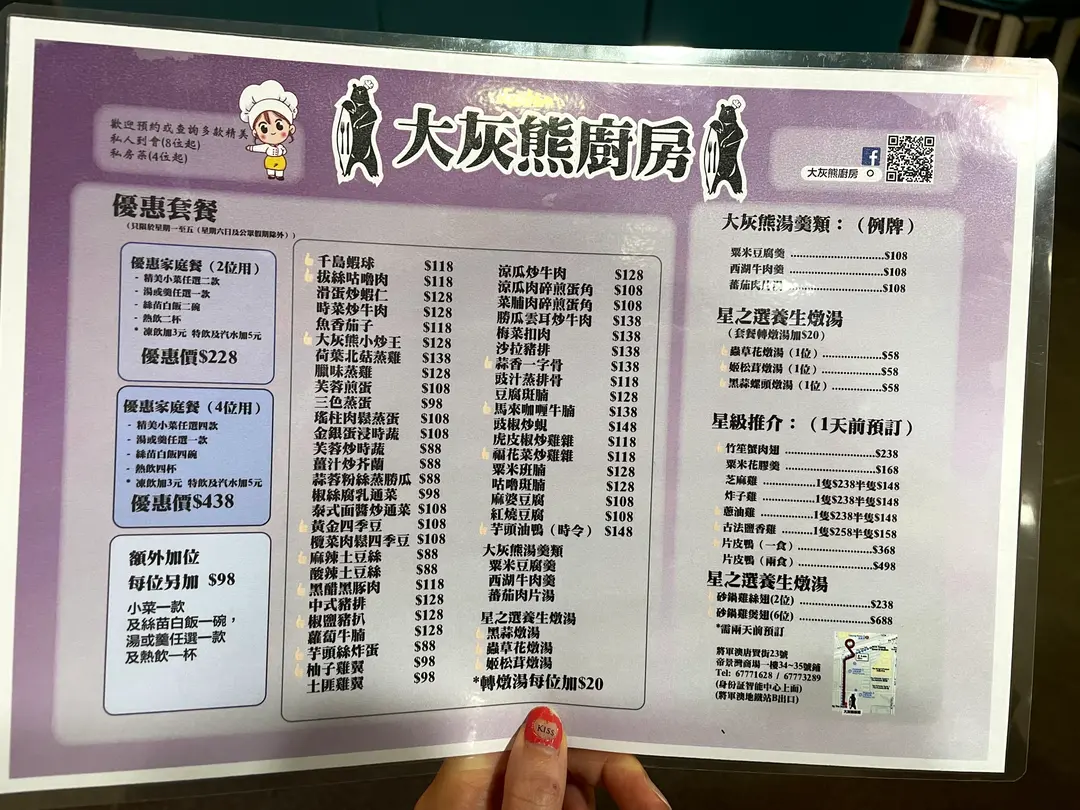 歡迎預約或查詢多款精美
私人到會(8位起)
私房菜(4位起)
大灰熊廚房
大灰熊廚房
優惠套餐
(只限於星期一至五（星期六日及公眾假期除外）)
優惠家庭餐（2位用）
- 精美小菜任選二款
- 湯或羹任選一款
- 絲苗白飯二碗
- 熱飲二杯
* 凍飲加3元 特飲及汽水加5元
優惠價$228
優惠家庭餐（4位用）
- 精美小菜任選四款
- 湯或羹任選一款
- 絲苗白飯四碗
- 熱飲四杯
* 凍飲加3元 特飲及汽水加5元
優惠價$438
額外加位
每位另加 $98
小菜一款
及絲苗白飯一碗，
湯或羹任選一款
及熱飲一杯
千島蝦球 $118
拔絲咕嚕肉 $118
滑蛋炒蝦仁 $128
時菜炒牛肉 $128
魚香茄子 $118
大灰熊小炒王 $128
荷葉北菇蒸雞 $138
臘味蒸雞 $128
芙蓉煎蛋 $108
三色蒸蛋 $98
瑤柱肉鬆蒸蛋 $108
金銀蛋浸時蔬 $108
芙蓉炒時蔬 $88
薑汁炒芥蘭 $88
蒜蓉粉絲蒸勝瓜 $88
椒絲腐乳通菜 $98
泰式面醬炒通菜 $108
黃金四季豆 $108
欖菜肉鬆四季豆 $108
麻辣土豆絲 $88
酸辣土豆絲 $88
黑醋黑豚肉 $118
中式豬排 $128
椒鹽豬扒 $128
蘿蔔牛腩 $128
芋頭絲炸蛋 $88
柚子雞翼 $98
土匪雞翼 $98
涼瓜炒牛肉 $128
涼瓜肉碎煎蛋角 $108
菜脯肉碎煎蛋角 $108
勝瓜雲耳炒牛肉 $138
梅菜扣肉 $138
沙拉豬排 $138
蒜香一字骨 $138
豉汁蒸排骨 $118
豆腐斑腩 $128
馬來咖喱牛腩 $138
豉椒炒蜆 $148
虎皮椒炒雞雜 $118
福花菜炒雞雜 $118
粟米班腩 $128
咕嚕班腩 $128
麻婆豆腐 $108
紅燒豆腐 $108
芋頭油鴨（時令） $148
大灰熊湯羹類
粟米豆腐羹
西湖牛肉羹
蕃茄肉片湯
星之選養生燉湯
黑蒜燉湯
蟲草花燉湯
姬松茸燉湯
*轉燉湯每位加$20
大灰熊湯羹類：（例牌）
粟米豆腐羹 ........................$108
西湖牛肉羹 ........................$108
蕃茄肉片湯 ........................$108
星之選養生燉湯
（套餐轉燉湯加$20）
蟲草花燉湯（1位）................$58
姬松茸燉湯（1位）................$58
黑蒜螺頭燉湯（1位）..............$58
星級推介：（1天前預訂）
竹笙蟹肉翅 ........................$238
粟米花膠羹 ........................$168
芝麻雞 ..............1隻$238半隻$148
炸子雞 ..............1隻$238半隻$148
蔥油雞 ..............1隻$238半隻$148
古法鹽香雞 ..........1隻$258半隻$158
片皮鴨（一食）....................$368
片皮鴨（兩食）....................$498
星之選養生燉湯
砂鍋雞絲翅(2位) ..................$238
砂鍋雞煲翅(6位) ..................$688
*需兩天前預訂
將軍澳唐賢街23號
帝景灣商場一樓34~35號鋪
Tel: 67771628 / 67773289
(身份証智能中心上面)
(將軍澳地鐵站B出口)
KISS